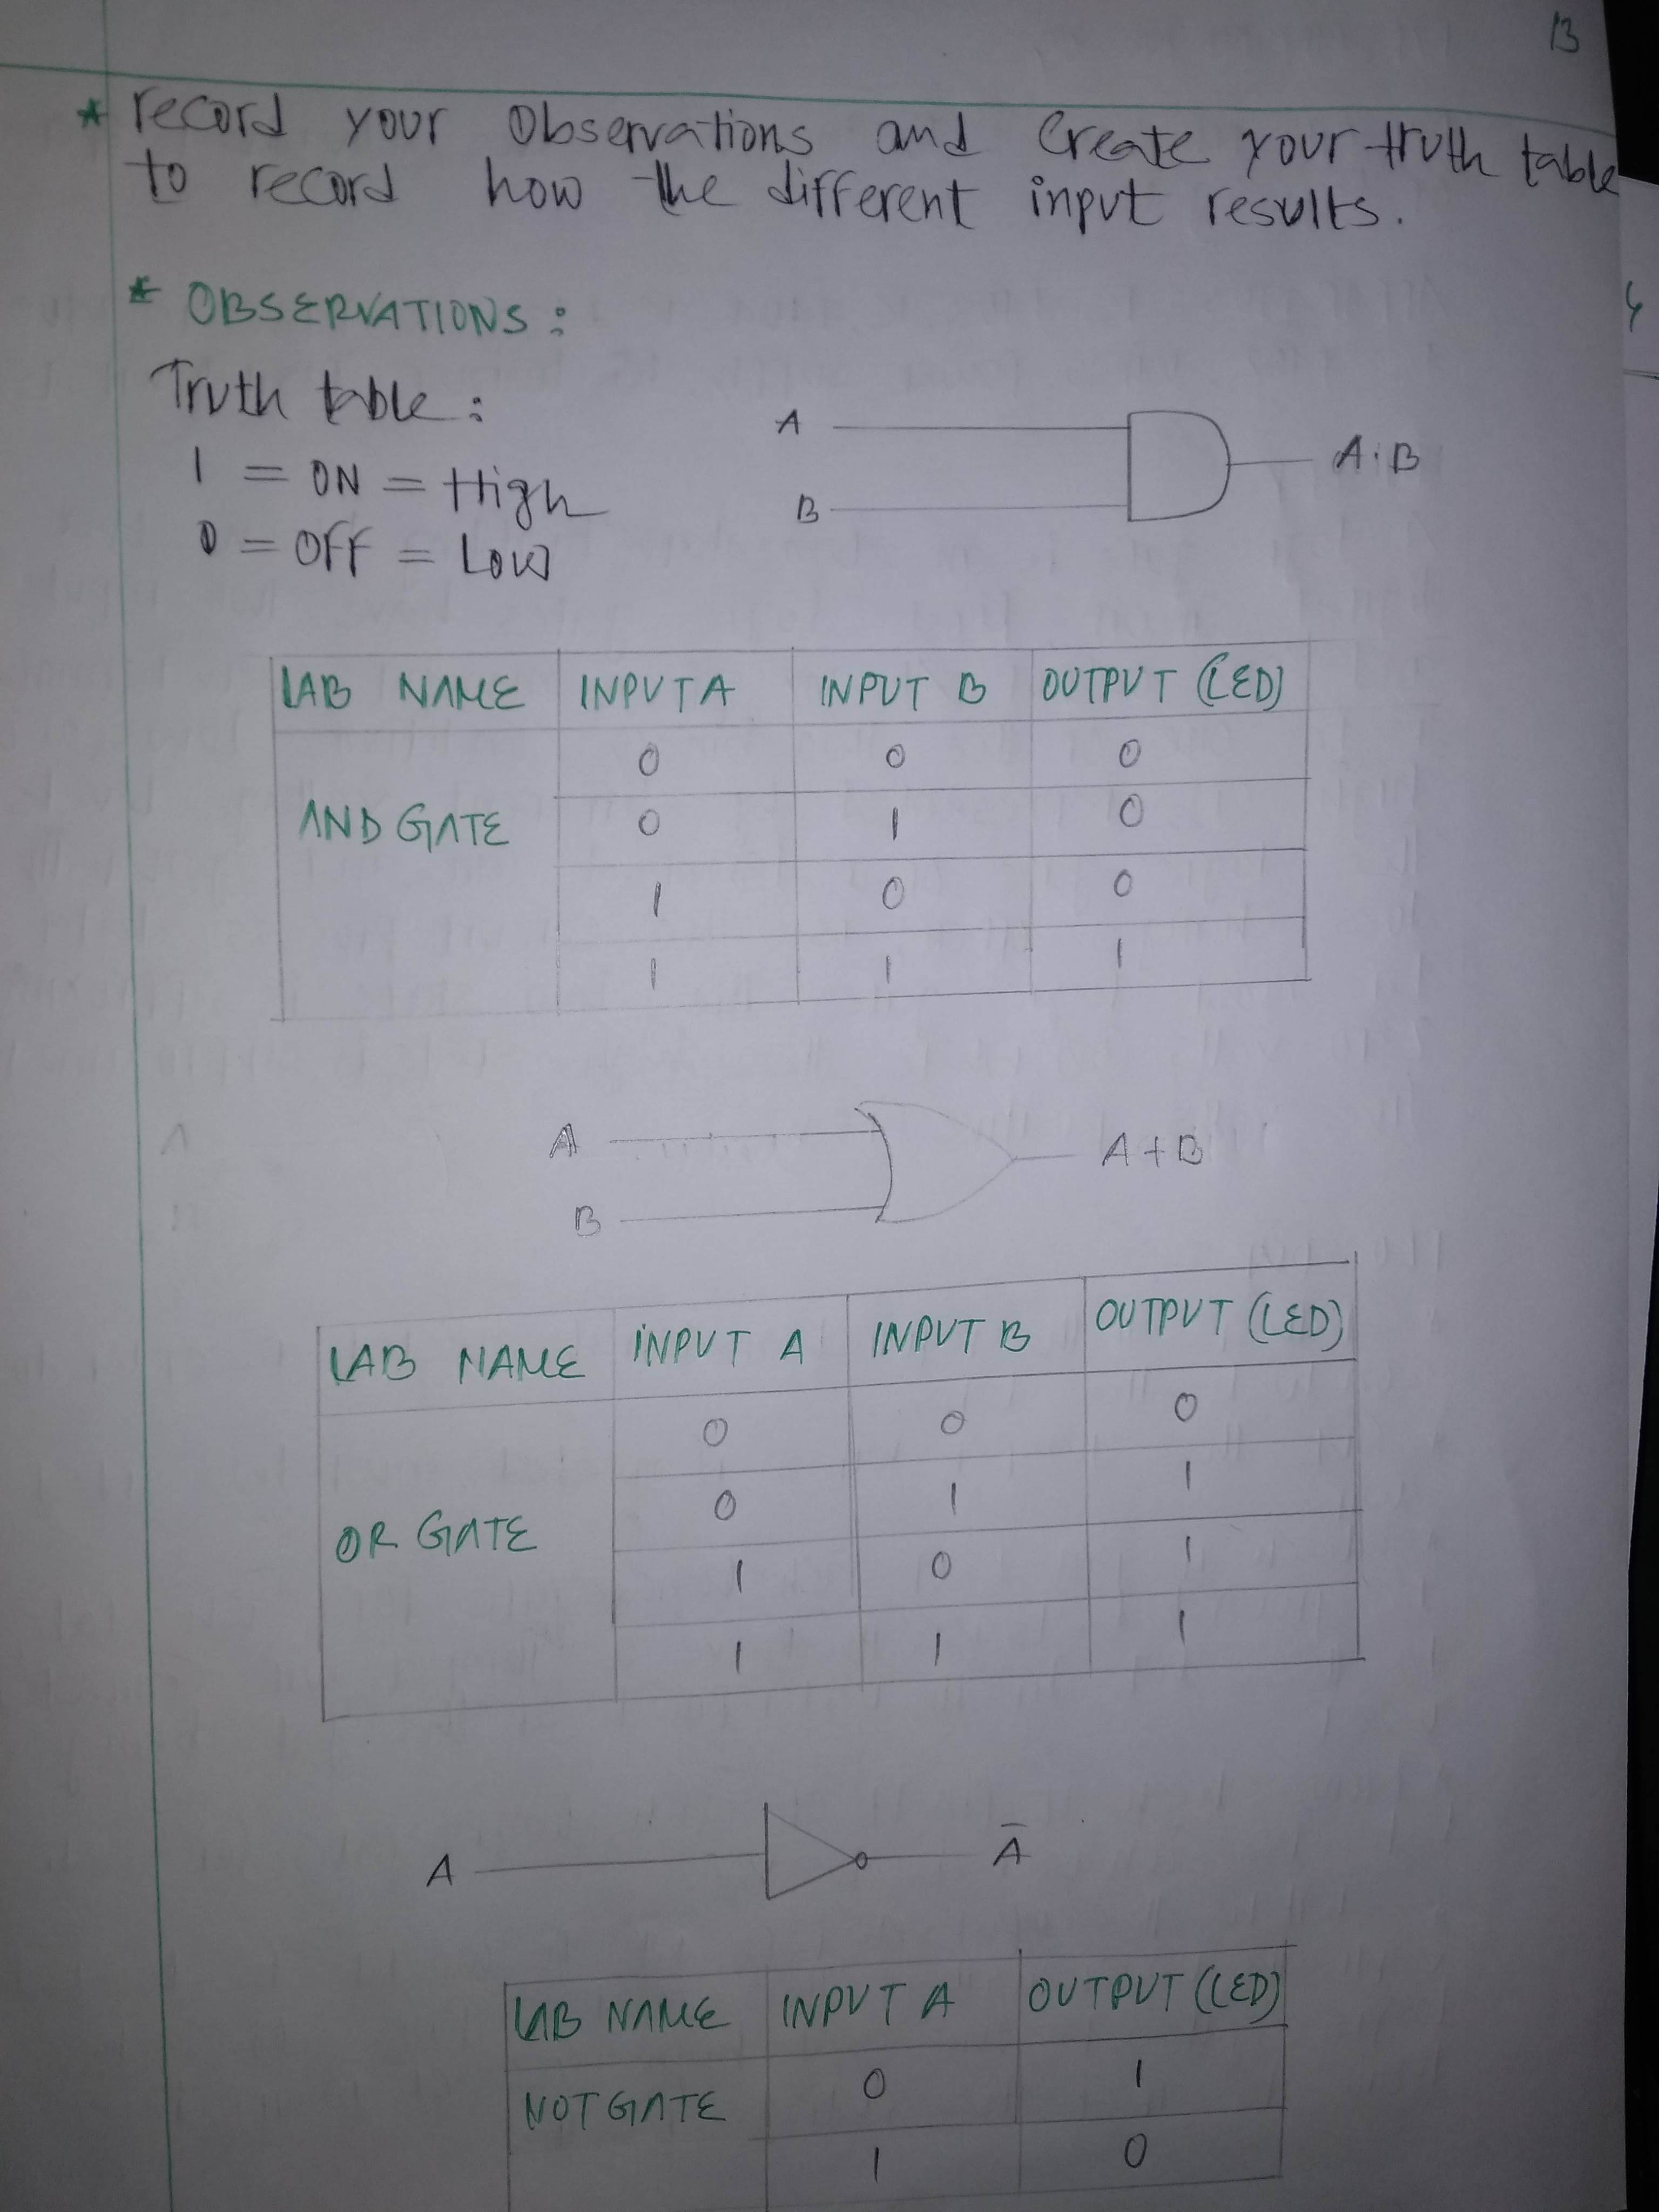 13
* record your Observations and Create your truth table
to record how the different input results.
* OBSERVATIONS:
Truth table:
1 = ON = High
0 = OFF = Low
A
B
A.B
LAB NAME INPUT A INPUT B OUTPUT (LED)
0 0 0
AND GATE 0 1 0
1 0 0
1 1 1
A
B
A+B
LAB NAME INPUT A INPUT B OUTPUT (LED)
0 0 0
0 1 1
OR GATE 1 0 1
1 1 1
A Ā
LAB NAME INPUT A OUTPUT (LED)
NOT GATE 0 1
1 0